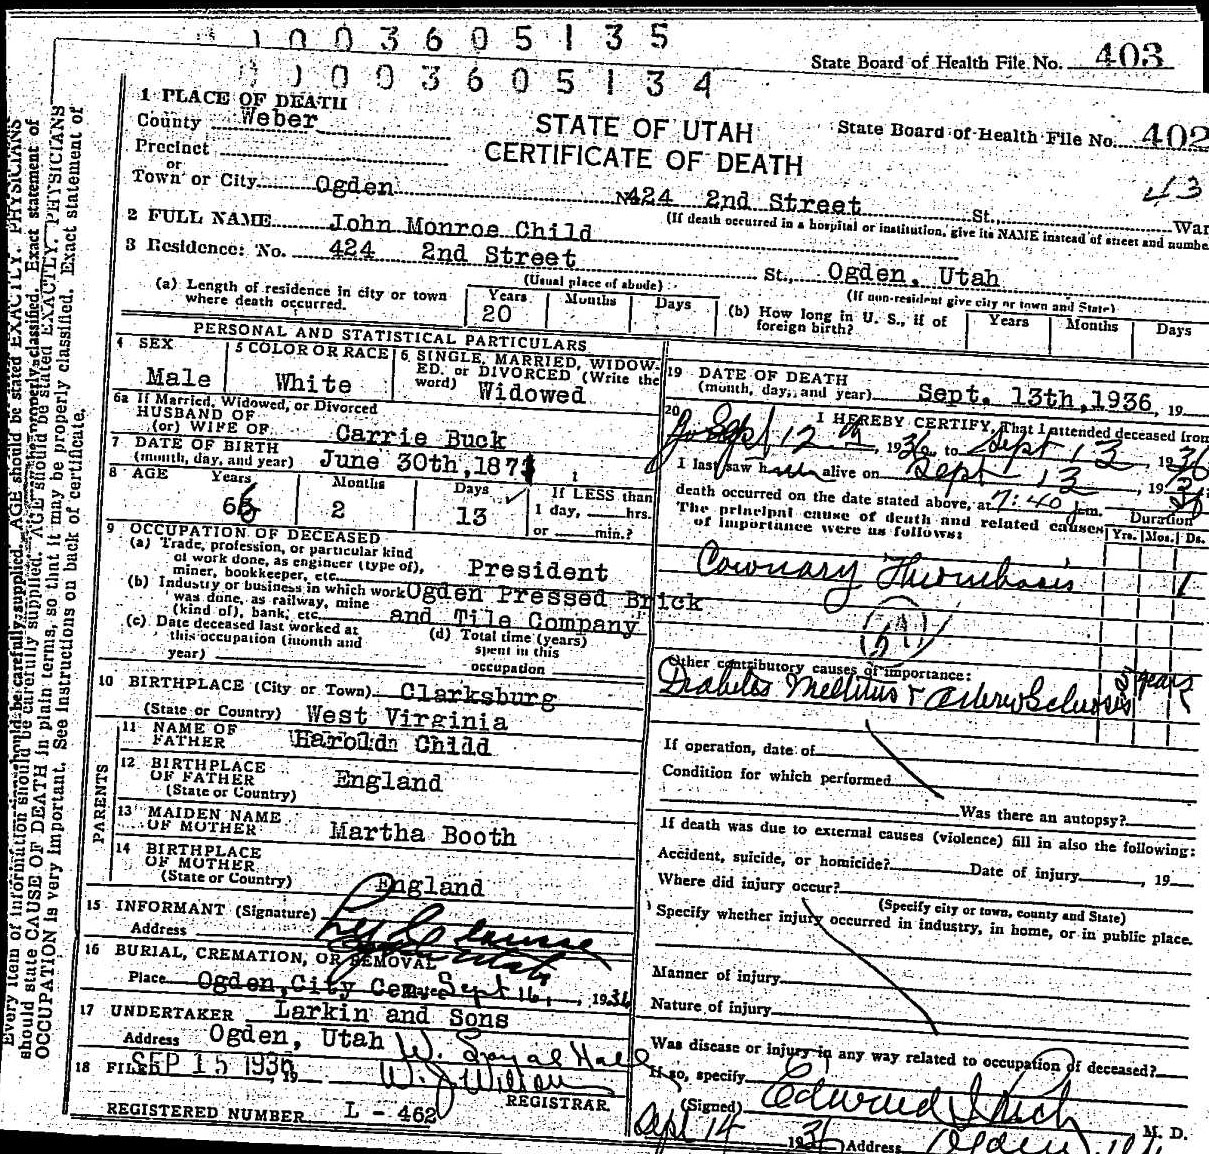 1 0 0 3 6 0 5 1 3 5
State Board of Health File No. 403
0 1 0 0 3 6 0 5 1 3 4
1 PLACE OF DEATH
County Weber
STATE OF UTAH
State Board of Health File No. 402
Precinct
CERTIFICATE OF DEATH
or
Town or City Ogden
43
424 2nd Street St., War
(If death occurred in a hospital or institution, give its NAME instead of street and numbe
2 FULL NAME John Monroe Child
3 Residence: No. 424 2nd Street St., Ogden, Utah
(Usual place of abode)
(If non-resident give city or town and State)
(a) Length of residence in city or town
where death occurred.
Years Months Days
20
(b) How long in U. S., if of
foreign birth?
Years Months Days
PERSONAL AND STATISTICAL PARTICULARS
4 SEX
Male
5 COLOR OR RACE
White
6 SINGLE, MARRIED, WIDOW-
ED, or DIVORCED (Write the
word) Widowed
6a If Married, Widowed, or Divorced
HUSBAND OF
(or) WIFE OF Carrie Buck
7 DATE OF BIRTH
(month, day, and year) June 30th, 187
8 AGE Years Months Days
2 13
If LESS than
1 day, hrs.
or min.?
9 OCCUPATION OF DECEASED
(a) Trade, profession, or particular kind
of work done, as engineer (type of),
miner, bookkeeper, etc. President
(b) Industry or business in which work
was done, as railway, mine
(kind of), bank, etc.
Ogden Pressed Brick
and Tile Company
(c) Date deceased last worked at
this occupation (month and
year)
(d) Total time (years)
spent in this
occupation
10 BIRTHPLACE (City or Town) Clarksburg
(State or Country) West Virginia
PARENTS
11 NAME OF
FATHER Harold Child
12 BIRTHPLACE
OF FATHER England
(State or Country)
13 MAIDEN NAME
OF MOTHER Martha Booth
14 BIRTHPLACE
OF MOTHER
(State or Country) England
15 INFORMANT (Signature)
Address
16 BURIAL, CREMATION, OR REMOVAL
Place Ogden, City Cem. Date Sept 16, 1936
17 UNDERTAKER Larkin and Sons
Address Ogden, Utah
18 FILED SEP 15 1936, 19
REGISTRAR
REGISTERED NUMBER L - 462
19 DATE OF DEATH
(month, day, and year) Sept. 13th, 1936, 19
20 I HEREBY CERTIFY, That I attended deceased from
Sept 12, 1936, to Sept 13, 1936
I last saw him alive on Sept 13, 19
death occurred on the date stated above, at 7:40 m.
The principal cause of death and related causes
of importance were as follows:
Duration
Yrs. Mos. Ds.
Coronary Thrombosis 1
Other contributory causes of importance:
Diabetes Mellitus + Arterio Sclerosis years
If operation, date of
Condition for which performed
Was there an autopsy?
If death was due to external causes (violence) fill in also the following:
Accident, suicide, or homicide? Date of injury , 19
Where did injury occur?
(Specify city or town, county and State)
Specify whether injury occurred in industry, in home, or in public place.
Manner of injury
Nature of injury
Was disease or injury in any way related to occupation of deceased?
If so, specify
(Signed) Edward I Rich M. D.
Sept 14 1936 Address Ogden, Ut.
Every item of information should be carefully supplied. AGE should be stated EXACTLY. PHYSICIANS
should state CAUSE OF DEATH in plain terms, so that it may be properly classified. Exact statement of
OCCUPATION is very important. See instructions on back of certificate.